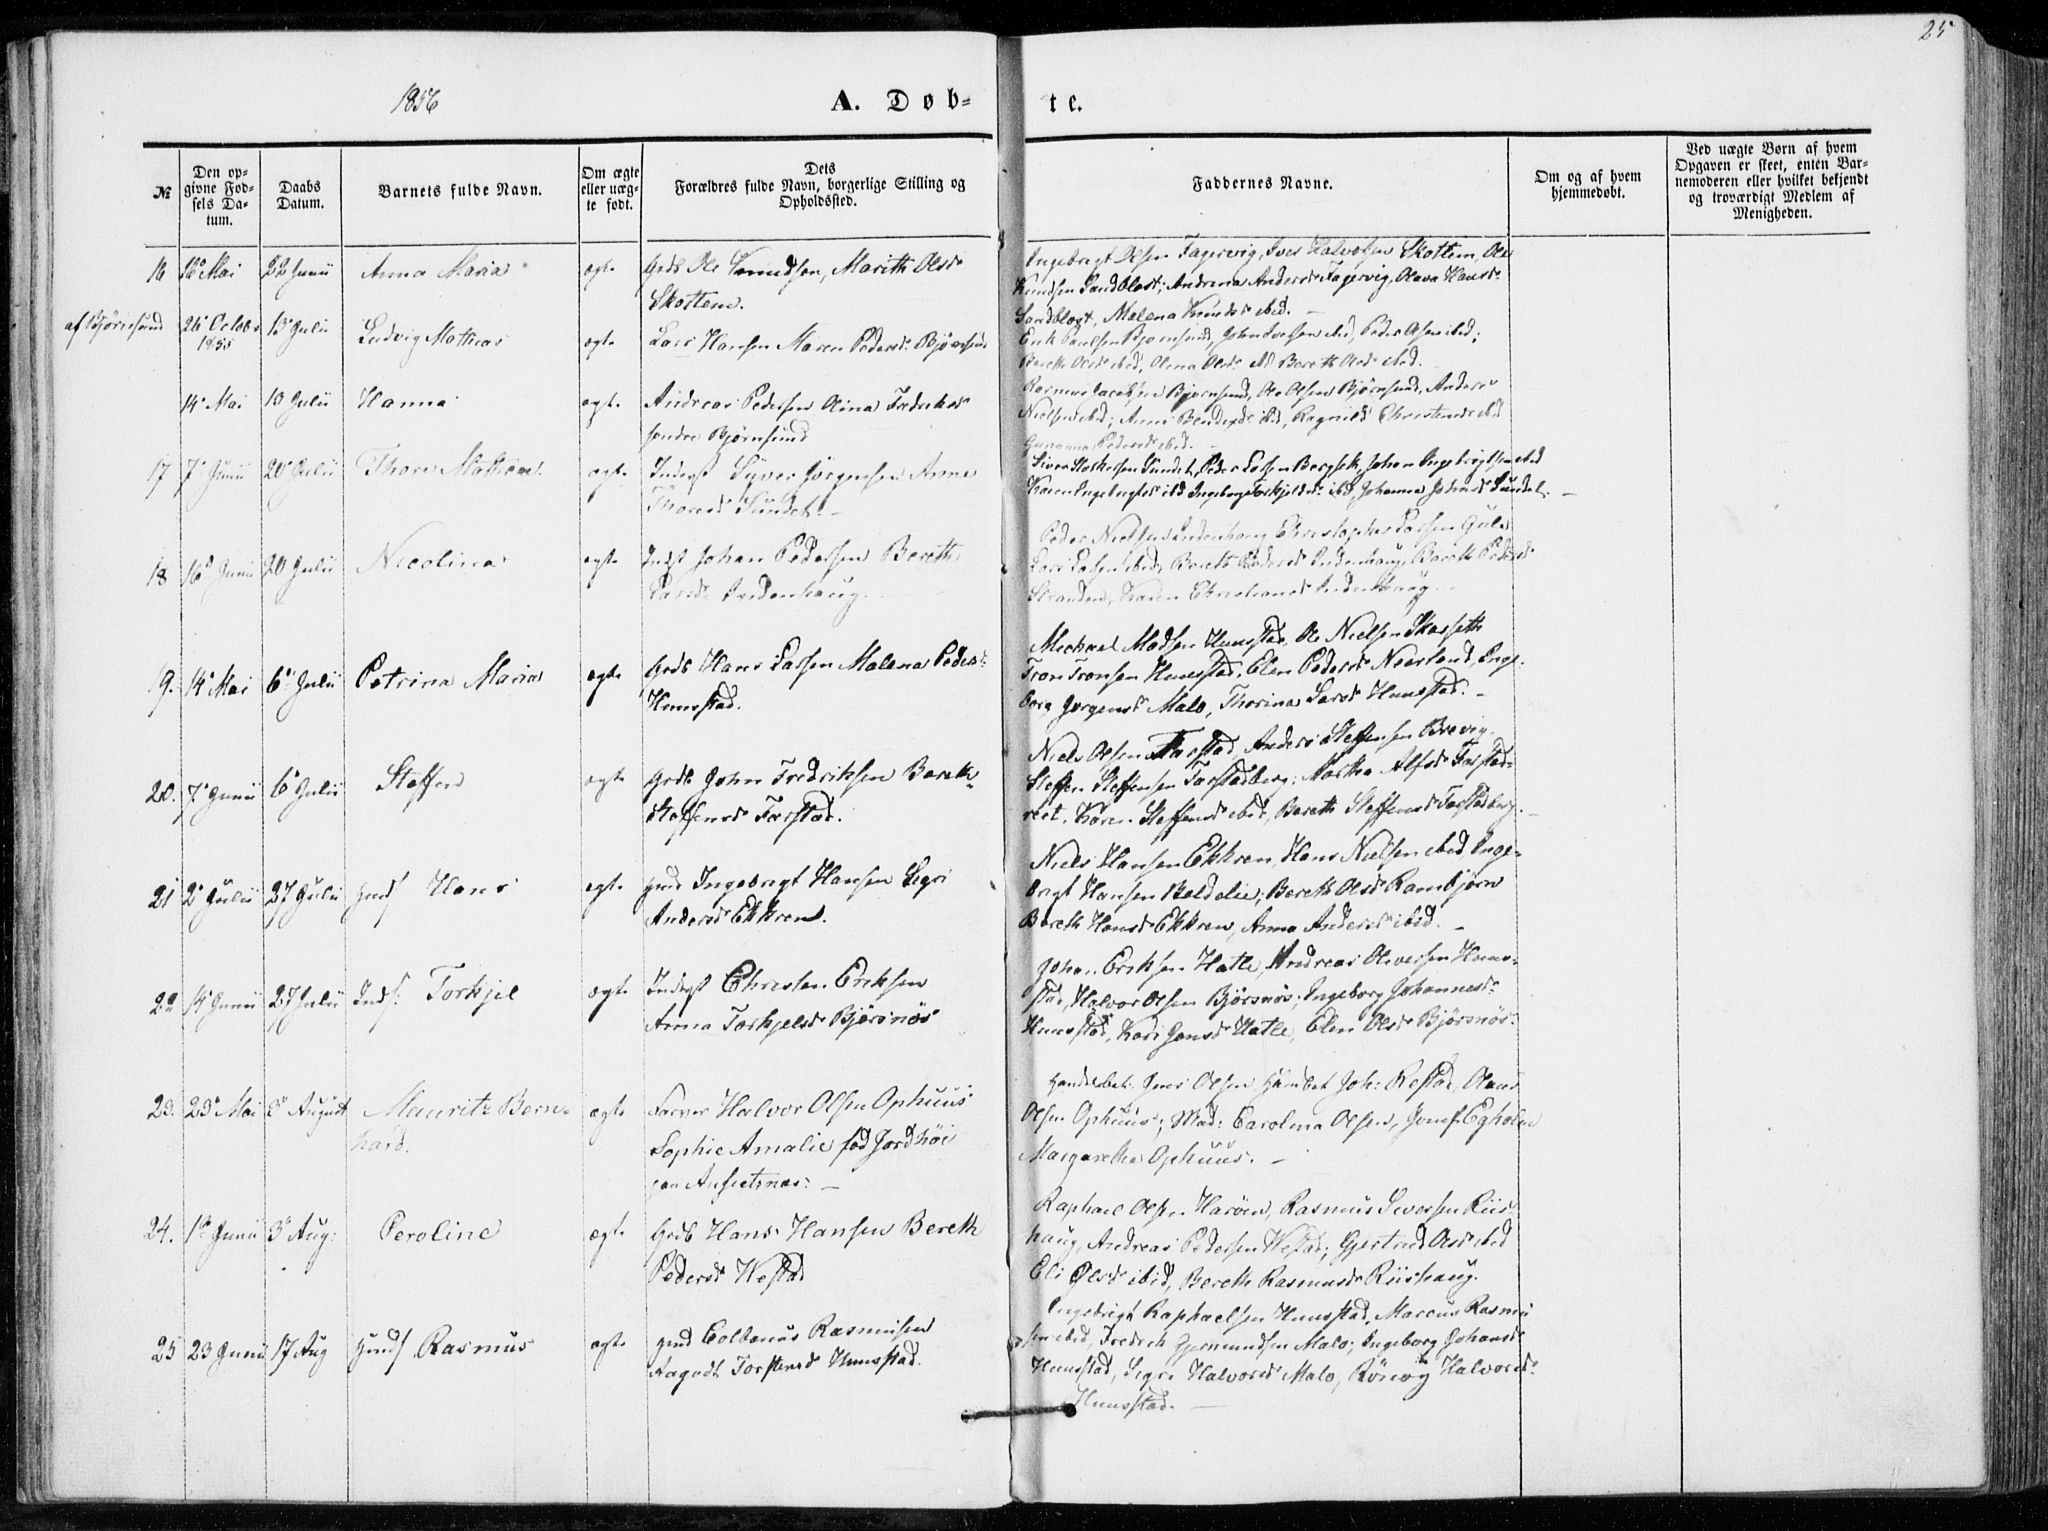 25
1856
A. Døb-
te.
№
Den op-
givne Fød-
sels Da-
tum.
Daabs
Datum.
Barnets fulde Navn.
Om ægte
eller uæg-
te født.
Dets
Forældres fulde Navn, borgerlige Stilling og
Opholdssted.
Faddernes Navne.
Om og af hvem
hjemmedøbt.
Ved uægte Børn af hvem
Opgaven er skeet, enten Bar-
nemoderen eller hvilket bekjendt
og troværdigt Medlem af
Menigheden.
16 Mai 22 Junii Anna Maria ægte Grdb Ole Knudsen, Marith Olsd
Skottem.
Ingebrgt Olsen Fagervig, Iver Halvorsen Skottem, Ole
Knudsen Sandblost; Andrina Andersd Fagervig, Olava Hansd
Sandblost, Malena Knudsd ibid.
af Bjørnsund 26 Octobr 13 Julii Ludvig Mathias ægte Lars Hansen Maren Pedersd Bjørnsund
1855
Erik Paulsen Bjørnsund, John Iversen ibid, Peder Olsen ibid;
Bereth Olsd ibid, Olina Olsd ibd Bereth Olsd ibid.
14 Mai 13 Julii Hanna ægte Andreas Pedersen Olina Fredriksd
søndre Bjørnsund
Rasmus Jacobsen Bjørnsund, Ole Olsen Bjørnsund, Anders
Nielsen ibid; Anne Bendixd ibid, Ragnild Christensd ibid
Pedersd ibid.
17 7 Junii 20 Julii Thore Mathias ægte Inderst Syver Jørgensen Anne
Thoresd Sundet.
Siver Sundet, Peder Larsen Bergset, Johan Ingebrigtsen ibid
Karen Ingebrgtsd ibd Ingeborg Torkjeldsd ibd, Johanna Johnsd Sundet.
18 16 Junii 20 Julii Nicolina ægte Indst Johan Pedersen Bereth
Larsd Indenhaug.
Peder Nielsen Indenhaug Christopher Larsen Gule
Lars Larsen ibid, Bereth Pedersd Indenhaug, Bereth Pedersd
Stranden, Karen Christiansd Indenhaug.
19. 14 Mai 6 Julii Petrina Maria ægte Grdb Hans Larsen Malena Pedersd
Hunstad.
Michael Madsen Hunstad, Ole Nielsen Skarseth
Tron Tronsen Hunstad, Elen Pedersd Neerland, Inge-
borg Jørgensd Malo, Thorina Larsd Hunstad.
20. 7 Junii 6 Julii Steffen ægte Grdb John Fredriksen Bereth
Steffensd Farstad.
Niels Olsen Farstad Anders Steffensen Brevig
Steffen Steffensen Farstadberg; Martha Alfsd Farstad-
reet, Karen Steffensd ibid, Bereth Steffensd Farstadberg.
21 2 Julii 27 Julii Hans ægte Ingebrigt Hansen Segri
Andersd Ekkren.
Niels Hansen Ekkren, Hans Nielsen ibid, Inge-
brigt Hansen Beldelie; Bereth Olsd Rambjørn
Bereth Hansd Ekkren, Anna Andersd ibid.
22 14 Junii 27 Julii Inds: Torkjel ægte Inderst Christen Eriksen
Anna Torkjelsd Bjørsnøs
Johan Eriksen Hatle, Andreas Oliversen Huns-
stad, Halvor Olsen Bjørsnøs; Ingeborg Johannesd
Hunstad, Kari Jonsd Hatle, Elen Olsd Bjørsnøs.
23. 23 Mai 3 August Mauritz Bern- ægte Farver Halvor Olsen Ophuus
hard. Sophie Amalie fød Jordhøi
paa
Handelsbet. Jens Olsen Joh: Restad, Olaus
Olsen Ophuus; Mad: Carolina Olsen, Jomf. Egholm
Margaretha Ophuus.
24. 1 Junii 3 Aug: Peroline ægte Grdb Hans Hansen Bereth
Pedersd Westad
Raphael Olsen Harøen, Rasmus Siversen Riis-
haug, Andreas Pedersen Westad; Gjertrud Olsd ibid
Eli Olsd ibid, Bereth Rasmusd Riishaug.
25 23 Junii 17 Aug Rasmus ægte Colbanus Rasmusen
Aagodt Torstensd Hunstad.
Ingebrigt Raphaelsen Hunstad, Marcus Rasmu
sen ibid, Fredrik Gjermundsen Malo; Ingeborg Johansd
Hunstad, Segri Halvorsd Malo, Rønnøg Halvorsd
Hunstad.